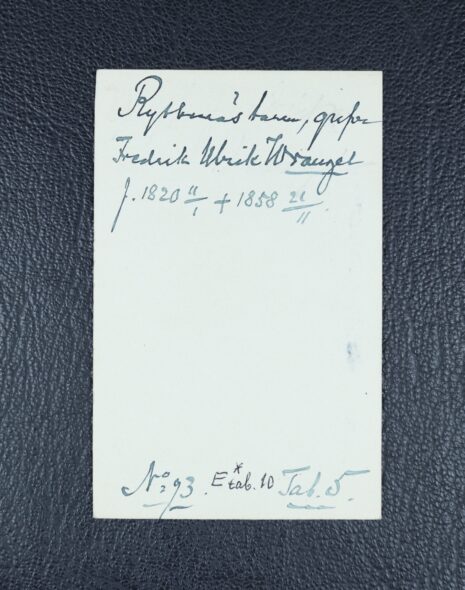 Ryttmästaren, grefve
Fredrik Ulrik Wrangel
f. 1820 11/1 + 1858 21/11.
No 93. E* tab. 10 Tab. 5.